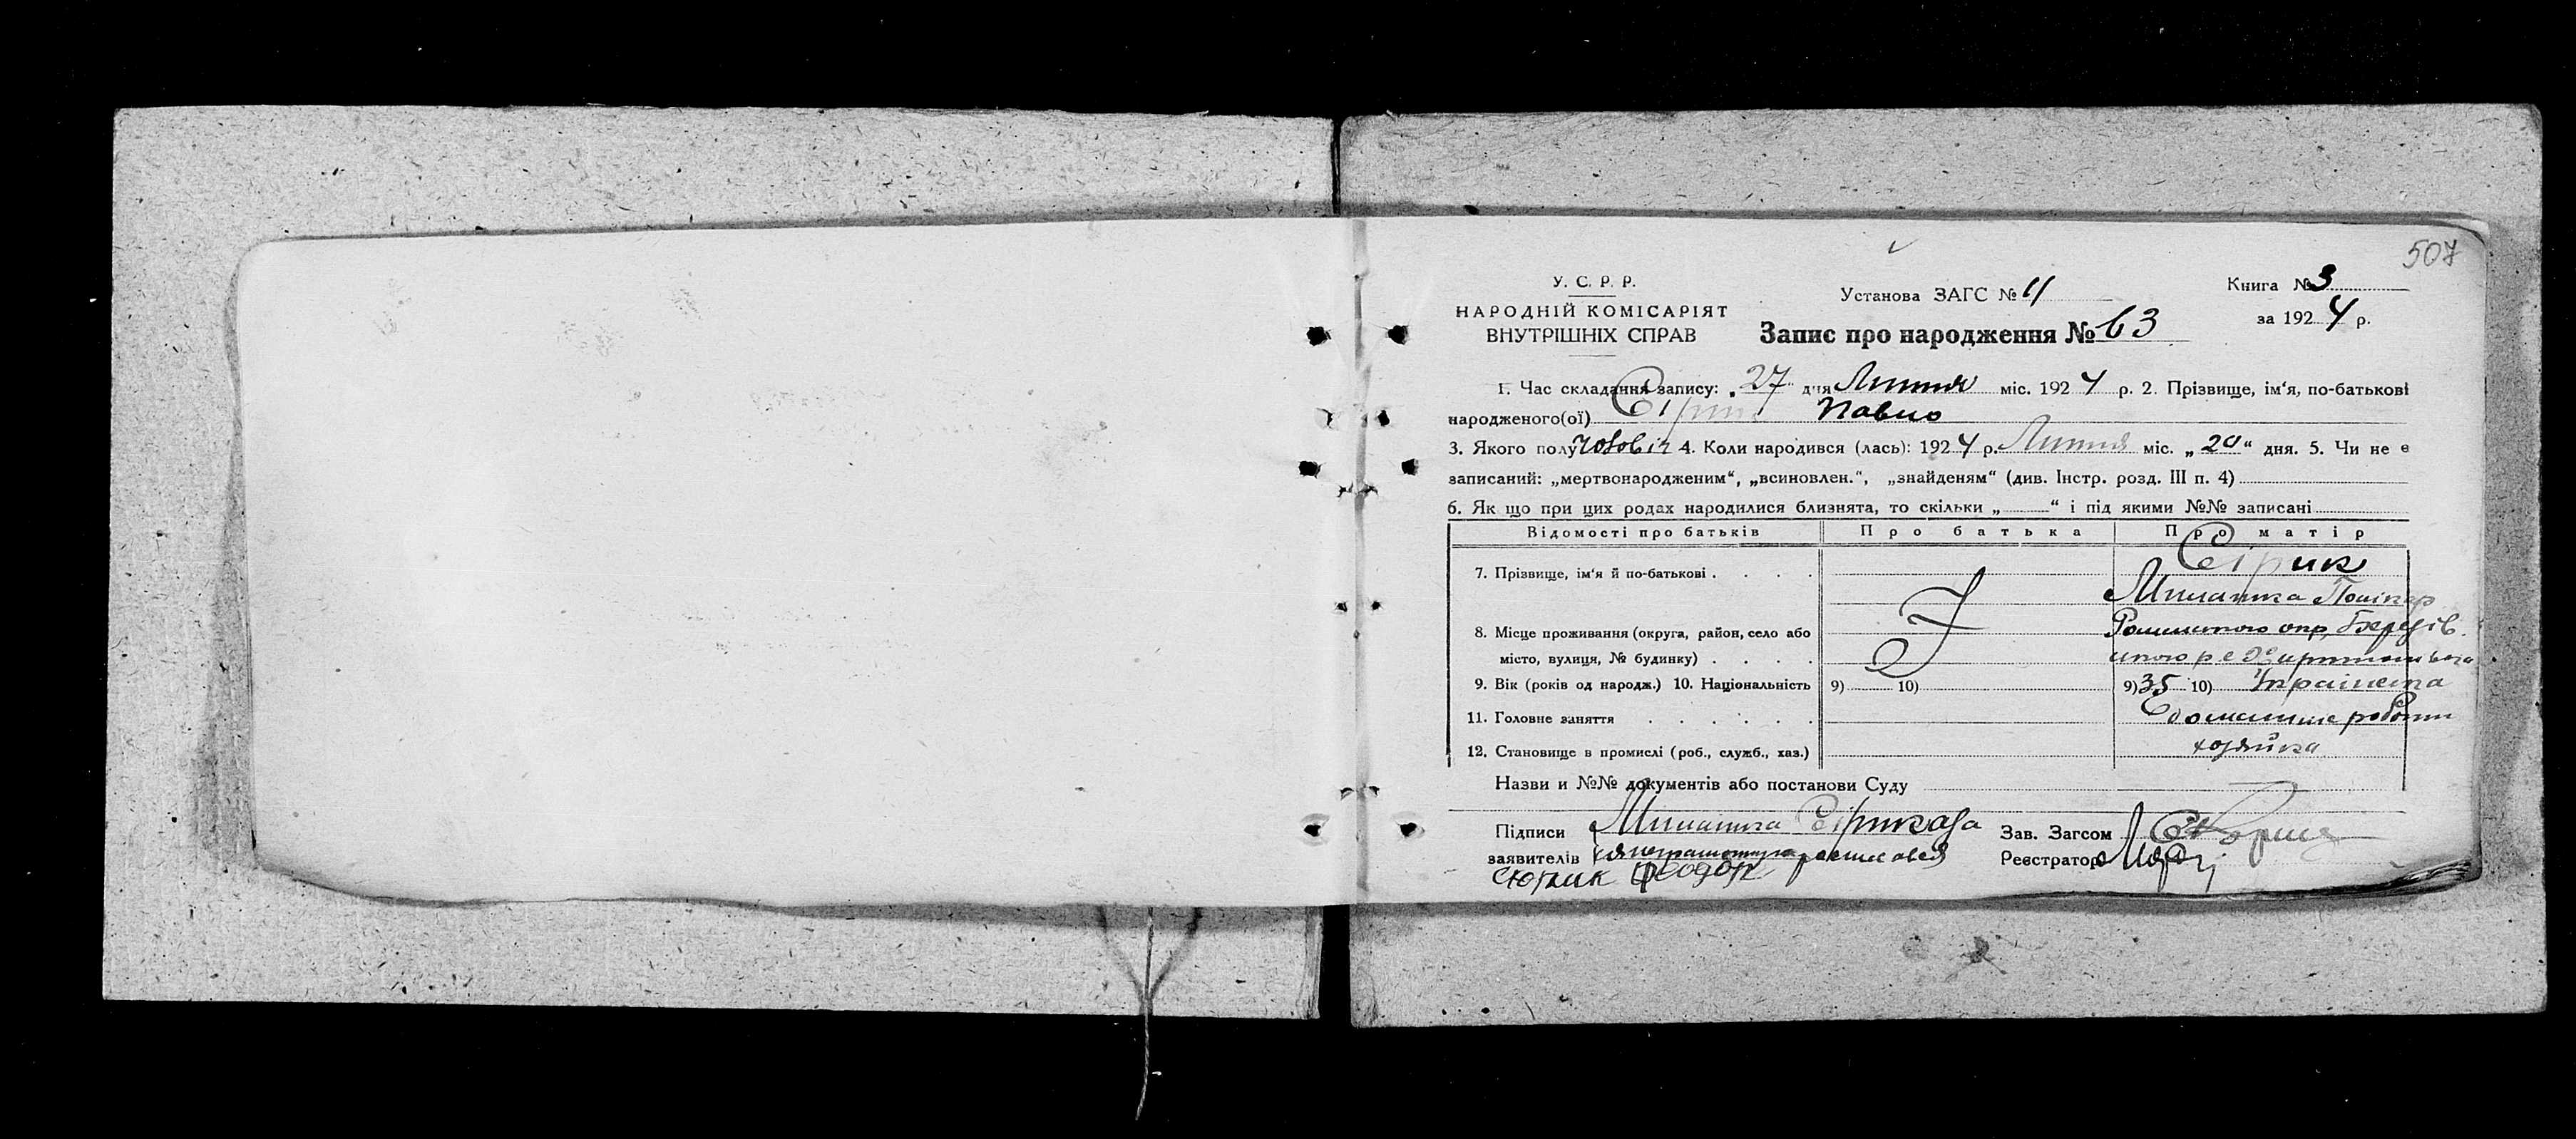 507
У. С. Р. Р.
НАРОДНІЙ КОМІСАРІЯТ
ВНУТРІШНІХ СПРАВ
Установа ЗАГС № 11
Книга № 3
за 1924 р.
Запис про народження № 63
1. Час складання запису: „27" дня Липня міс. 1924 р. 2. Прізвище, ім'я, по-батькові
народженого(ої) Сірик Павло
3. Якого полу чоловіч 4. Коли народився (лась): 1924 р. Липня міс. „20" дня. 5. Чи не є
записаний: „мертвонародженим", „всиновлен.", „знайденям" (див. Інстр. розд. III п. 4)
6. Як що при цих родах народилися близнята, то скільки „ " і під якими №№ записані
Відомості про батьків Про батька Про матір
7. Прізвище, ім'я й по-батькові Сірик
Роменского окр. Березів
8. Місце проживання (округа, район, село або
місто, вулиця, № будинку)
9. Вік (років од народж.) 10. Національність 9) 10) 9) 35 10) Українка
11. Головне заняття домашне роботи
12. Становище в промислі (роб., служб., хаз.) хозяйка
Назви и №№ документів або постанови Суду
Підписи Зав. Загсом
заявителів Реєстратор
Феодор